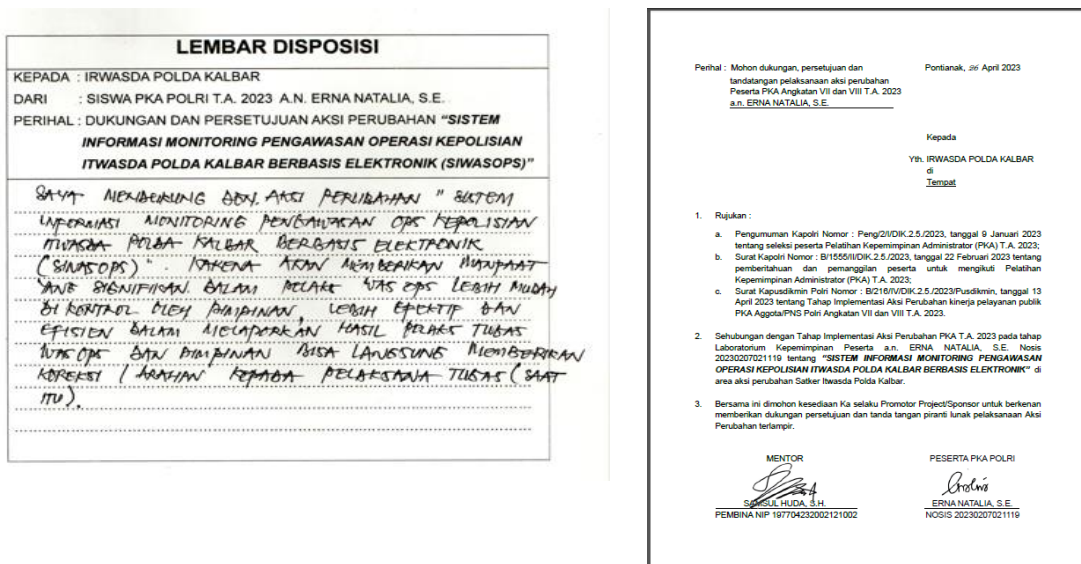 LEMBAR DISPOSISI
KEPADA : IRWASDA POLDA KALBAR
DARI : SISWA PKA POLRI T.A. 2023 A.N. ERNA NATALIA, S.E.
PERIHAL : DUKUNGAN DAN PERSETUJUAN AKSI PERUBAHAN "SISTEM
INFORMASI MONITORING PENGAWASAN OPERASI KEPOLISIAN
ITWASDA POLDA KALBAR BERBASIS ELEKTRONIK (SIWASOPS)"
SAYA MENDUKUNG DGN. AKSI PERUBAHAN " SISTEM
INFORMASI MONITORING PENGAWASAN OPS KEPOLISIAN
ITWASDA POLDA KALBAR BERBASIS ELEKTRONIK
(SIWASOPS)". KARENA AKAN MEMBERIKAN MANFAAT
YANG SIGNIFIKAN. DALAM PELAKS WAS OPS LEBIH MUDAH
DI KONTROL OLEH PIMPINAN, LEBIH EFEKTIF DAN
EFISIEN DALAM MELAPORKAN HASIL PELAKS TUGAS
WAS OPS DAN PIMPINAN BISA LANGSUNG MEMBERIKAN
KOREKSI / ARAHAN KEPADA PELAKSANA TUGAS (SAAT
ITU).
Perihal : Mohon dukungan, persetujuan dan
tandatangan pelaksanaan aksi perubahan
Peserta PKA Angkatan VII dan VIII T.A. 2023
a.n. ERNA NATALIA, S.E.
Pontianak, 26 April 2023
Kepada
Yth. IRWASDA POLDA KALBAR
di
Tempat
1. Rujukan :
a. Pengumuman Kapolri Nomor : Peng/2/I/DIK.2.5./2023, tanggal 9 Januari 2023
tentang seleksi peserta Pelatihan Kepemimpinan Administrator (PKA) T.A. 2023;
b. Surat Kapolri Nomor : B/1555/II/DIK.2.5./2023, tanggal 22 Februari 2023 tentang
pemberitahuan dan pemanggilan peserta untuk mengikuti Pelatihan
Kepemimpinan Administrator (PKA) T.A. 2023;
c. Surat Kapusdikmin Polri Nomor : B/216/IV/DIK.2.5./2023/Pusdikmin, tanggal 13
April 2023 tentang Tahap Implementasi Aksi Perubahan kinerja pelayanan publik
PKA Aggota/PNS Polri Angkatan VII dan VIII T.A. 2023.
2. Sehubungan dengan Tahap Implementasi Aksi Perubahan PKA T.A. 2023 pada tahap
Laboratorium Kepemimpinan Peserta a.n. ERNA NATALIA, S.E. Nosis
20230207021119 tentang "SISTEM INFORMASI MONITORING PENGAWASAN
OPERASI KEPOLISIAN ITWASDA POLDA KALBAR BERBASIS ELEKTRONIK" di
area aksi perubahan Satker Itwasda Polda Kalbar.
3. Bersama ini dimohon kesediaan Ka selaku Promotor Project/Sponsor untuk berkenan
memberikan dukungan persetujuan dan tanda tangan piranti lunak pelaksanaan Aksi
Perubahan terlampir.
MENTOR
SAMSUL HUDA, S.H.
PEMBINA NIP 197704232002121002
PESERTA PKA POLRI
ERNA NATALIA, S.E.
NOSIS 20230207021119